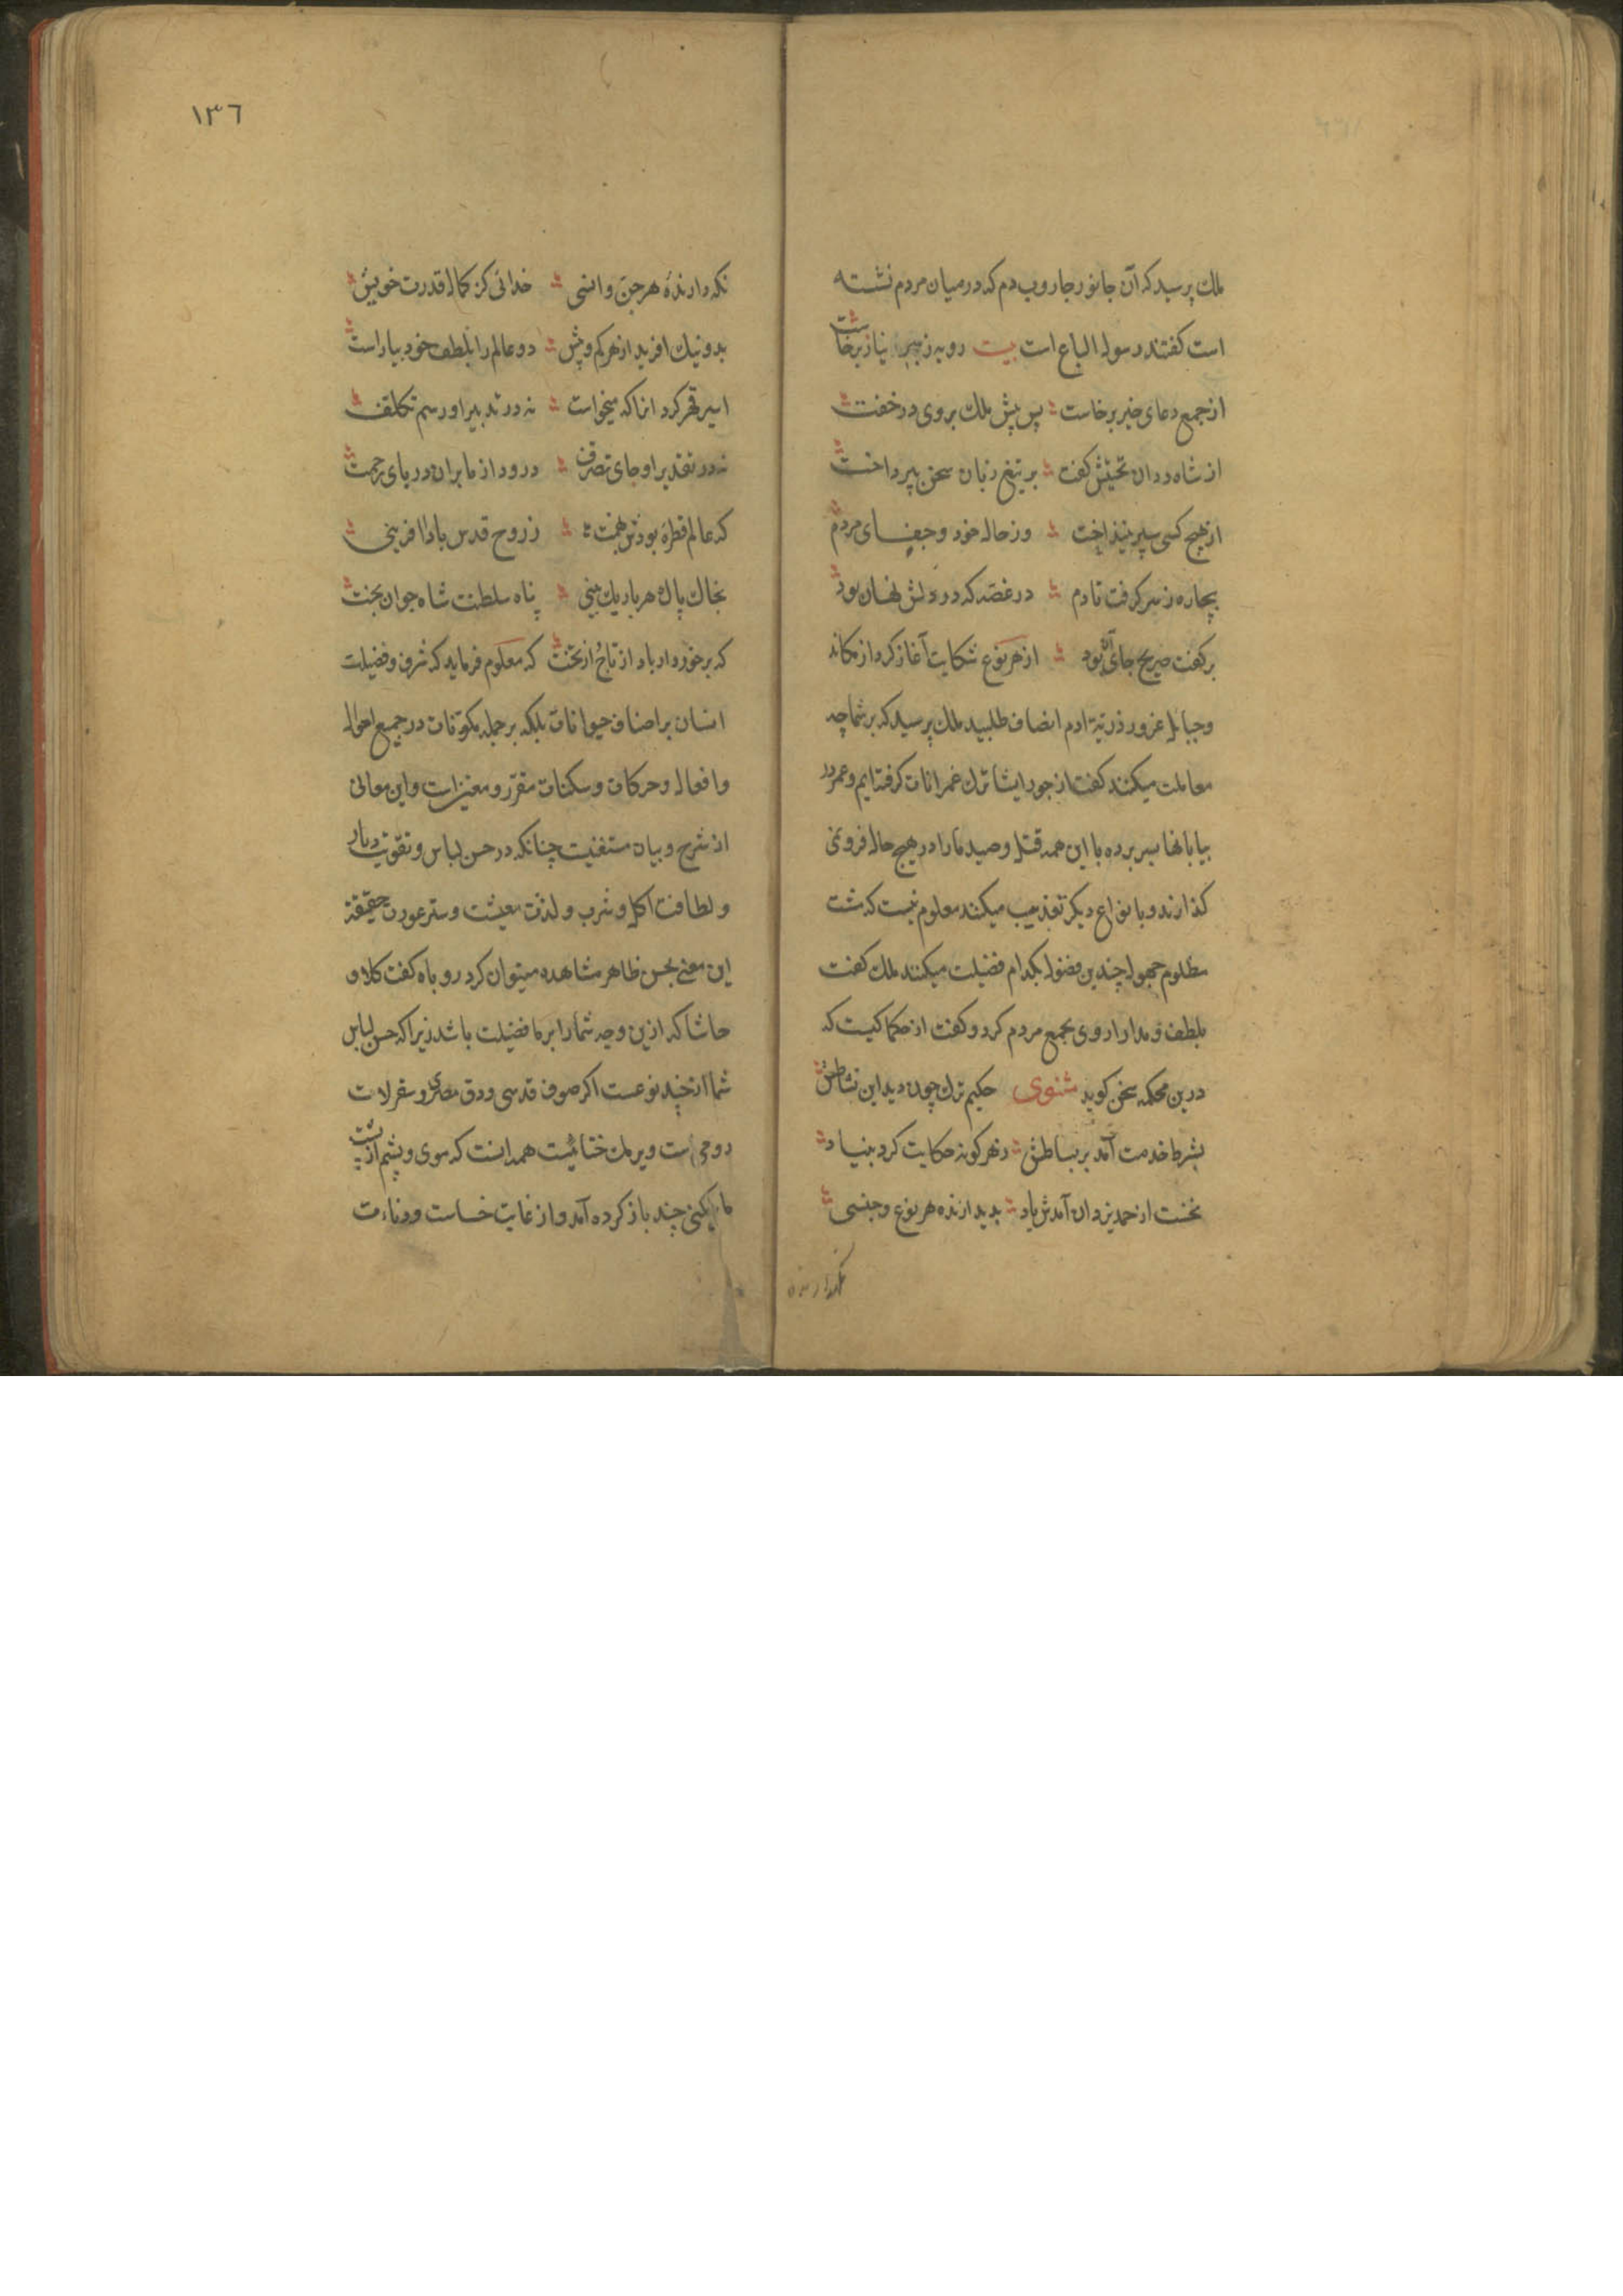 ملك پرسید که آن جانور جاروب دم که در میان مردم نشسته
است کفتند رسول السباع است بیت روبه ز نیاز برخاست
از جمع دعای خیر برخاست پس پیش ملك بروی در خفت
از شاه ددان تحیتش کفت بر تیغ زبان سخن بپرداخت
از هیچ کسی سپر نینداخت وز حال خود و جفای مردم
بیچاره ز سر کرفت تا دم در غصّه که در دلش نهان بود
بر کفت صریح جای آن بود از هر نوع شکایت آغاز کرد از مکاید
و حبایل غرور ذریّة ادم انصاف طلبید ملك پرسید که بر شما چه
معاملت میکنند کفت از جور ایشان ترك عمرانات کرفته ایم و عمر در
بیابانها بسر برده با این همه قتل و صید ما را در هیچ حال فرو نمی
کذارند و بانواع دیکر تعذیب میکنند معلوم نیست که مشت
مظلوم جهول چندین فضول بکدام فضیلت میکنند ملك کفت
بلطف و مدارا روی بجمع مردم کرد و کفت از حکما کیست که
درین محکمه سخن کوید مثنوی حکیم ترك چون دید این نشاطش
بشرط خدمت آمد بر بساطش ز هر کونه حکایت کرد بنیاد
نخست از حمد یزدان آمدش یاد پدید ارندهٔ هر نوع و جنسی
نکهدارنده
١٣٦
نکه دارندهٔ هر جنّ و انسی خدائی کز کمال قدرت خویش
بد و نیك افرید از هر کم و بیش دو عالم را بلطف خود بیاراست
اسیر قهر کرد انرا که میخواست نه در تدبیر او رسم تکلّف
نه در تقدیر او جای تصرّف درود از ما بران دریای رحمت
که عالم قطرهٔ بودش ز همّت ز روح قدس بادا افرینی
بخاك پاك هر باریك بینی پناه سلطنت شاه جوان بخت
که برخوردار باد از تاج و از تخت که معلوم فرماید که شرف و فضیلت
انسان بر اصناف حیوانات بلکه بر جمله مکوّنات در جمیع احوال
و افعال و حرکات و سکنات مقرّر و معیّن است و این معانی
از شرح و بیان مستغنیست چنانکه در حسن لباس و تقویت
و لطافت اکل و شرب و لذت معیشت و ستر عورت حقیقة
این معنی بحس ظاهر مشاهده میتوان کرد روباه کفت کلا و
حاشا که ازین وجه شما را بر ما فضیلت باشد زیرا که حسن لباس
شما از چند نوعست اکر صوف قدسی و دق مصری و سقرلات
رومی است و یرمك ختائیست همه انست که موی و پشم از پشت
ما کنی چند باز کرده آمد و از غایت خساست و دناءت